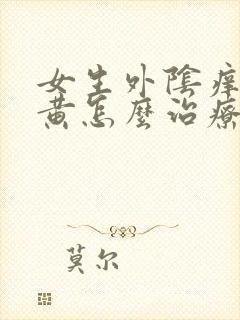 女生外陰痒
黃怎麼治療
莫尔